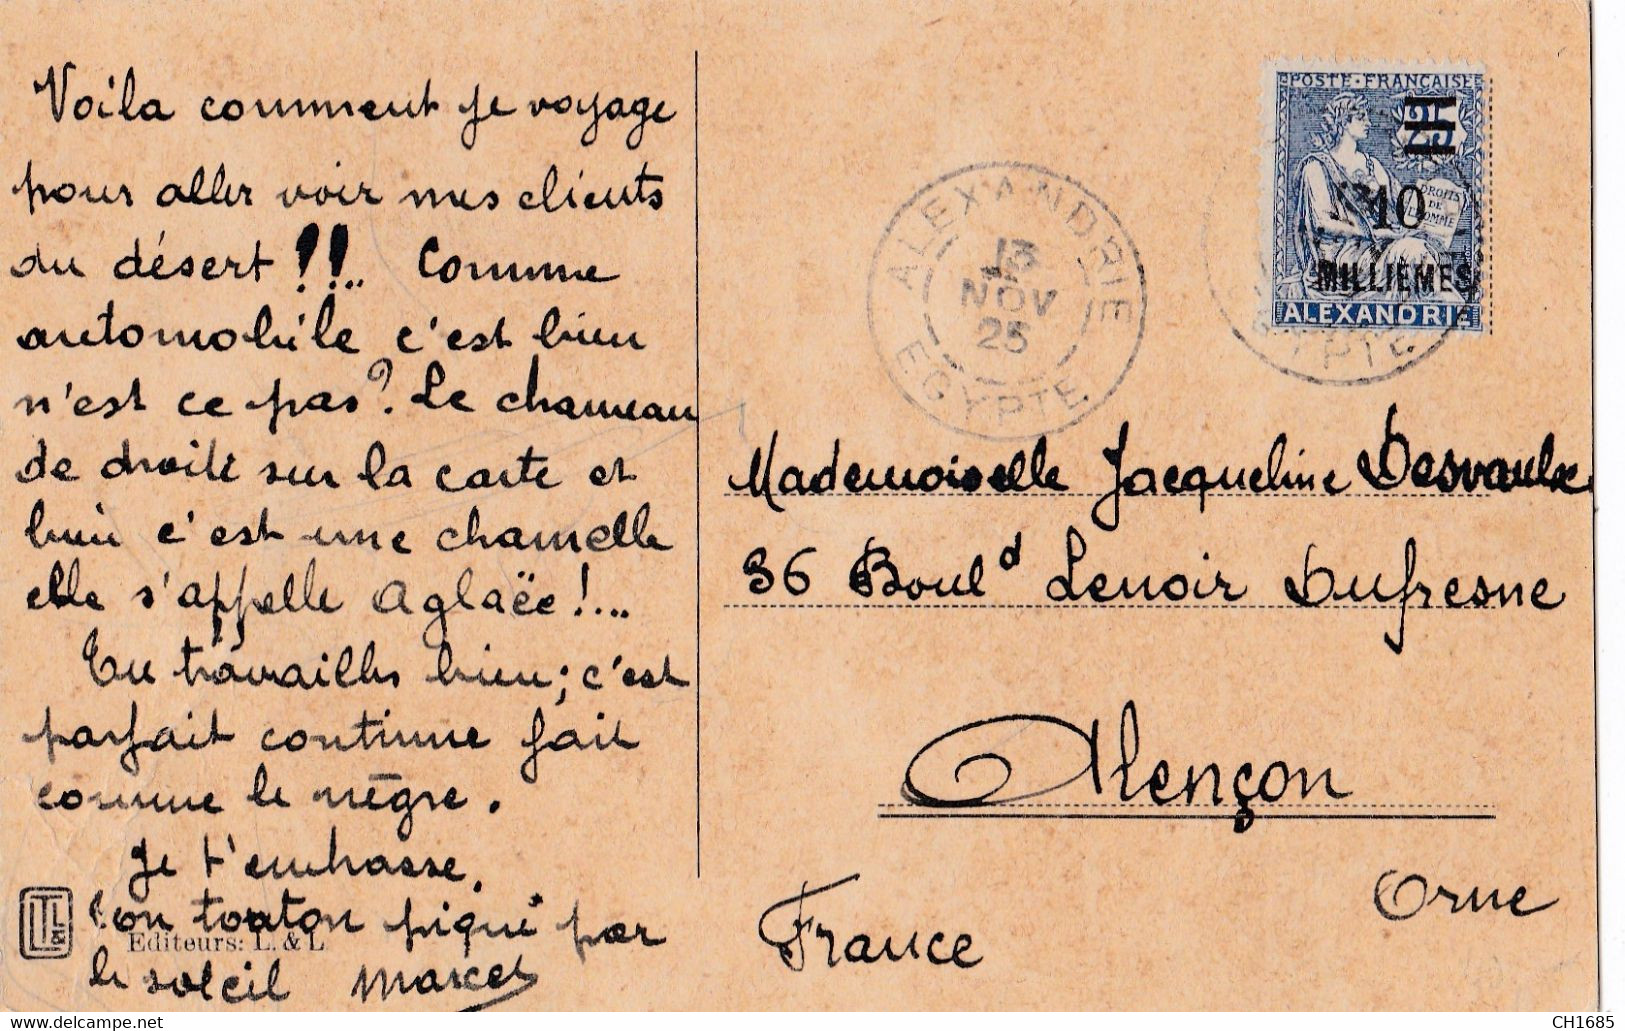 Voila comment je voyage
pour aller voir mes clients
du désert !!... Comme
automobile c'est bien
n'est ce pas? Le chameau
de droite sur la carte et
bien c'est une chamelle
elle s'appelle Aglaëe!...
Tu travailles bien; c'est
parfait continue fait
comme le nègre.
Je t'embrasse.
Ton tonton piqué par
le soleil Marcel
LTL&
Editeurs: L. & L
POSTE·FRANÇAISE
25
DROITS
DE
L'HOMME
10
MILLIÈMES
ALEXANDRIE
ALEXANDRIE
13
NOV
25
EGYPTE
EGYPTE
Mademoiselle Jacqueline
36 Boul^d Lenoir Dufresne
Alençon
Orne
France
CH1685